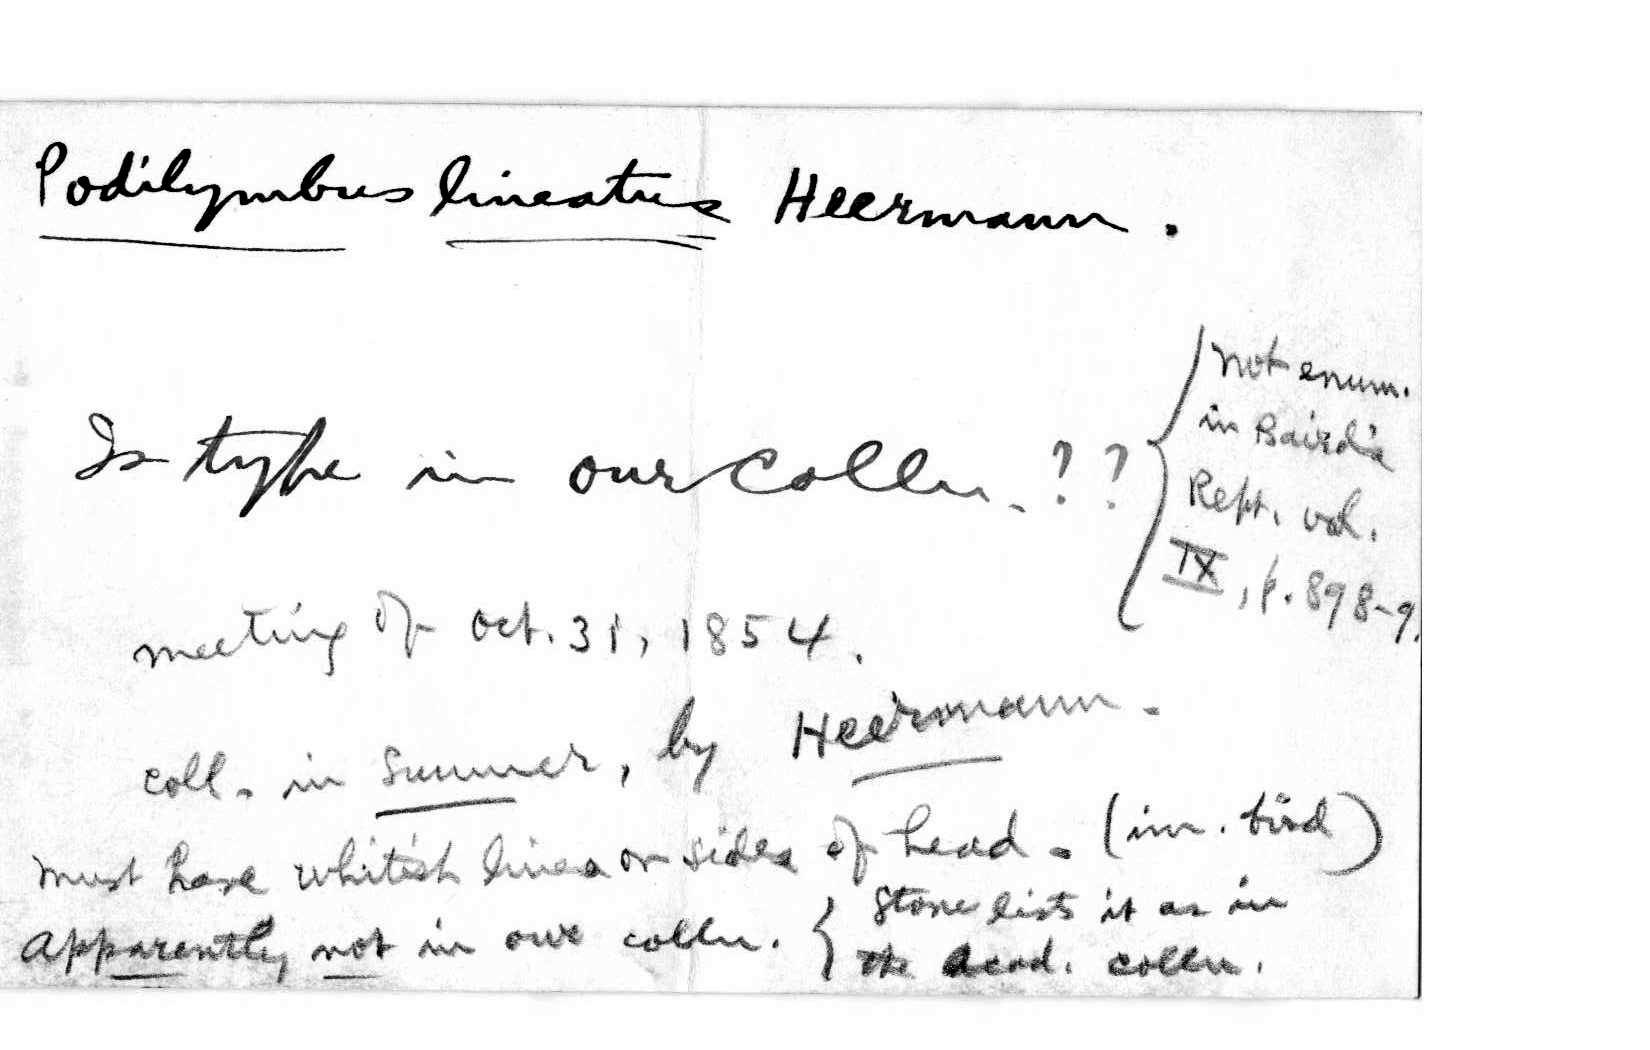 Podilymbus lineatus Heermann.
Is type in our colln. ??
not enum.
in Baird's
Rept. vol.
IX, p. 898-9.
meeting of Oct. 31, 1854.
coll. in Summer, by Heermann.
must have whitish lines on sides of head. (im. bird)
apparently not in our colln.
Stone lists it as in
the Acad. colln.